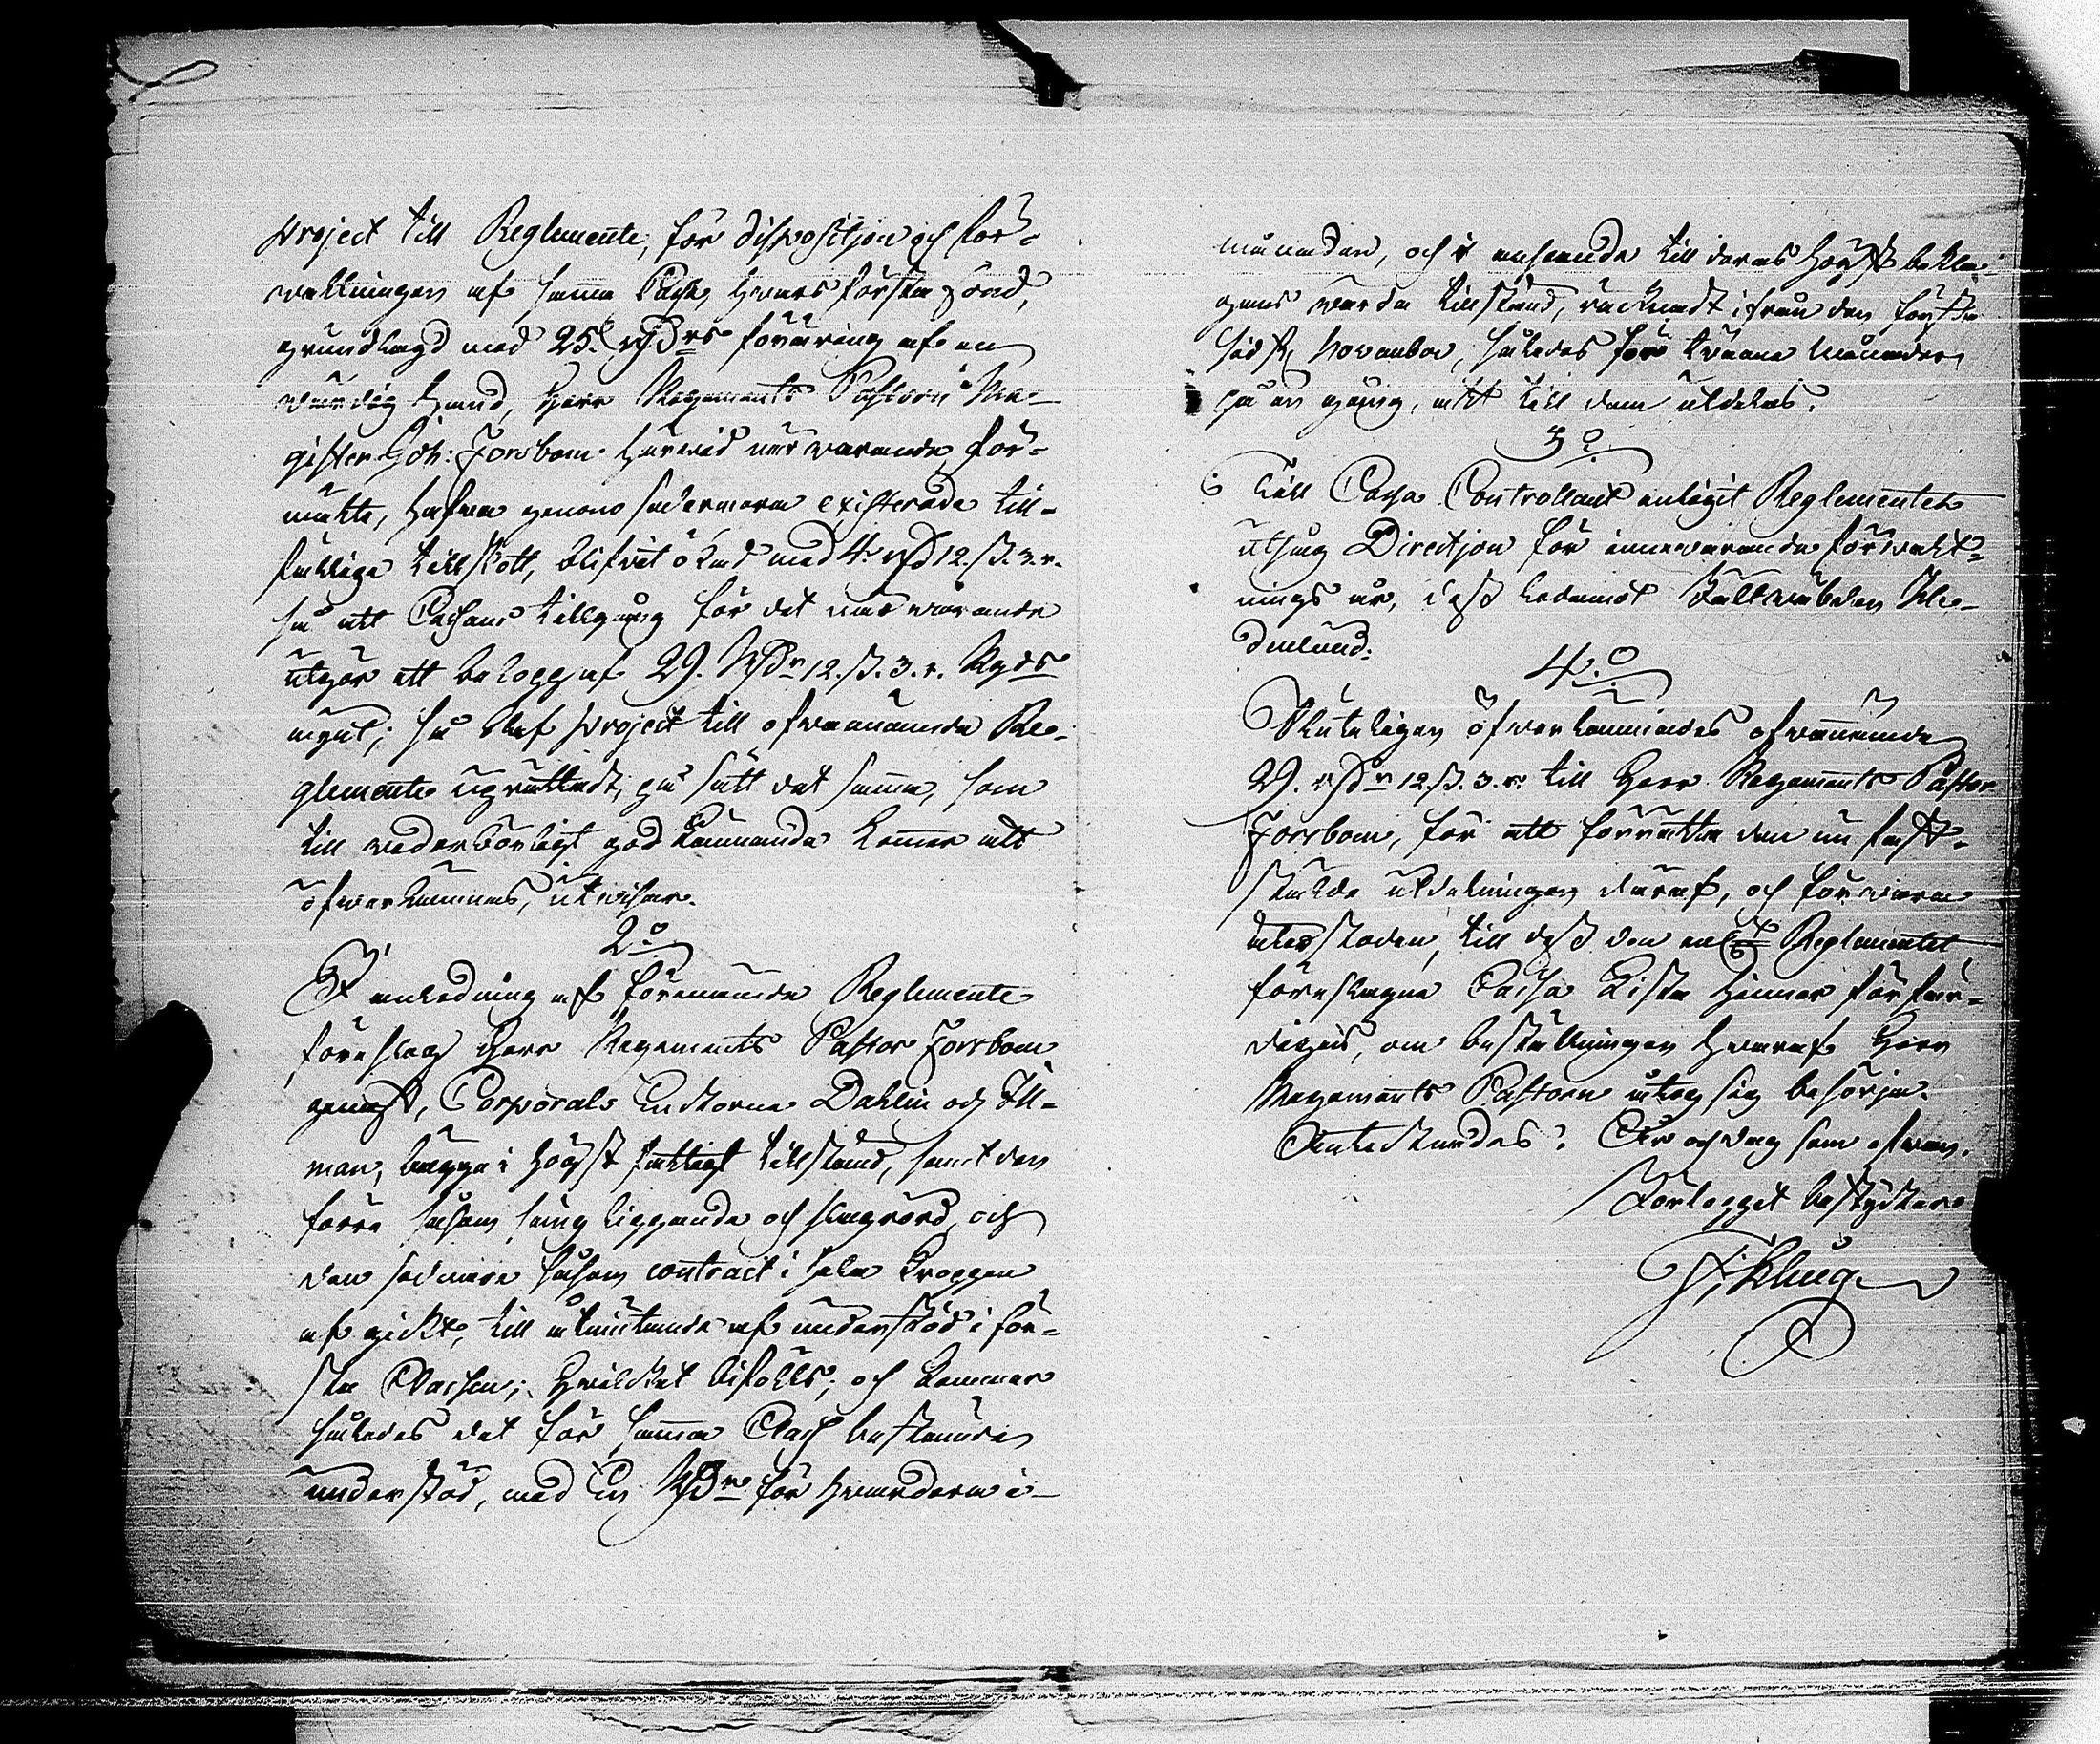 project till Reglemente, för disposition och för-
waltningen af samma Cassa, hwars första fond,
grundlagd med 25. RDrs föräring af en
wärdig hand, Herr Regements Pastorn Ma-
gister Joh: Forsbom härwid närwarande för-
mälte, hafwa genom sedermera existerade till-
fällige tillskott, blifwit ökad med 4. RD 12. ß. 3. r.
så att Cassans tillgång för det närwarande
utgör ett belopp af 29. RDr 12. ß. 3. r. Rgds
mynt; så blef project till ofwannämnda Re-
glemente upprättadt, på sätt det samma, som
till wederbörligt godkännande kommer att
öfwerlämnas, utwisar.
2:o
I anledning af förenämnda Reglemente
föreslog Herr Regements Pastor Forsbom
genast, Corporals Enkorna Dahlin och Ill-
man, bägge i högst fattigt tillstånd, samt den
förra såsom säng liggande och slagrörd, och
den sednare såsom contract i hela kroppen
af gickt, till åtnjutande af understöd i för-
sta Classen; hwilket bifölls; och kommer
således det för samma Class bestämda
understöd, med En RDr för hwardera i
månaden, och i anseende till deras högst bekla-
gans wärda tillstånd, räknadt ifrån den första
sidstl. November, således för twänne Månader
på en gång, att till dem utdelas.
3:o
Till Cassa Controllant enligit Reglementet
utsåg Direction för innewarande förwalt-
nings år, dess ledamot Fältwäbelen We-
denlund.
4:o
Sluteligen öfwerlämnades ofwannämnde
29. RDr 12. ß. 3. r. till Herr Regements Pastor
Forsbom, för att förrätta den nu fast-
stälda utdelningen däraf, och förwara
återstoden, till dess den enl:t Reglementet
föreslagna Cassa Kista hinner förfär-
digas, om beställningen hwaraf Herr
Regements Pastorn åtog sig besörja.
Åhr och dag som ofwan.
F. Klug